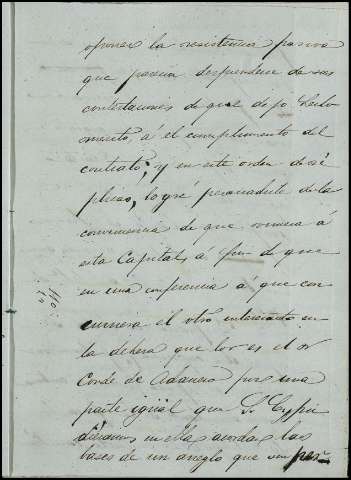 oponer la resistencia pasiva
que parecia desprenderse de sus
contestaciones de que dejo hecho
merito, á el cumplimento del
contrato; y en este orden de sú
plicas, logré persuadirle de la
conveniencia de que viniera á
esta Capital á fin de que
en una conferencia á que con
curriera el otro interesado en
la dehesa que lo es el Sr
Conde de Adanero por una
parte igual que S. E. y
dieramos en ella acordar las
bases de un arreglo que sin per-